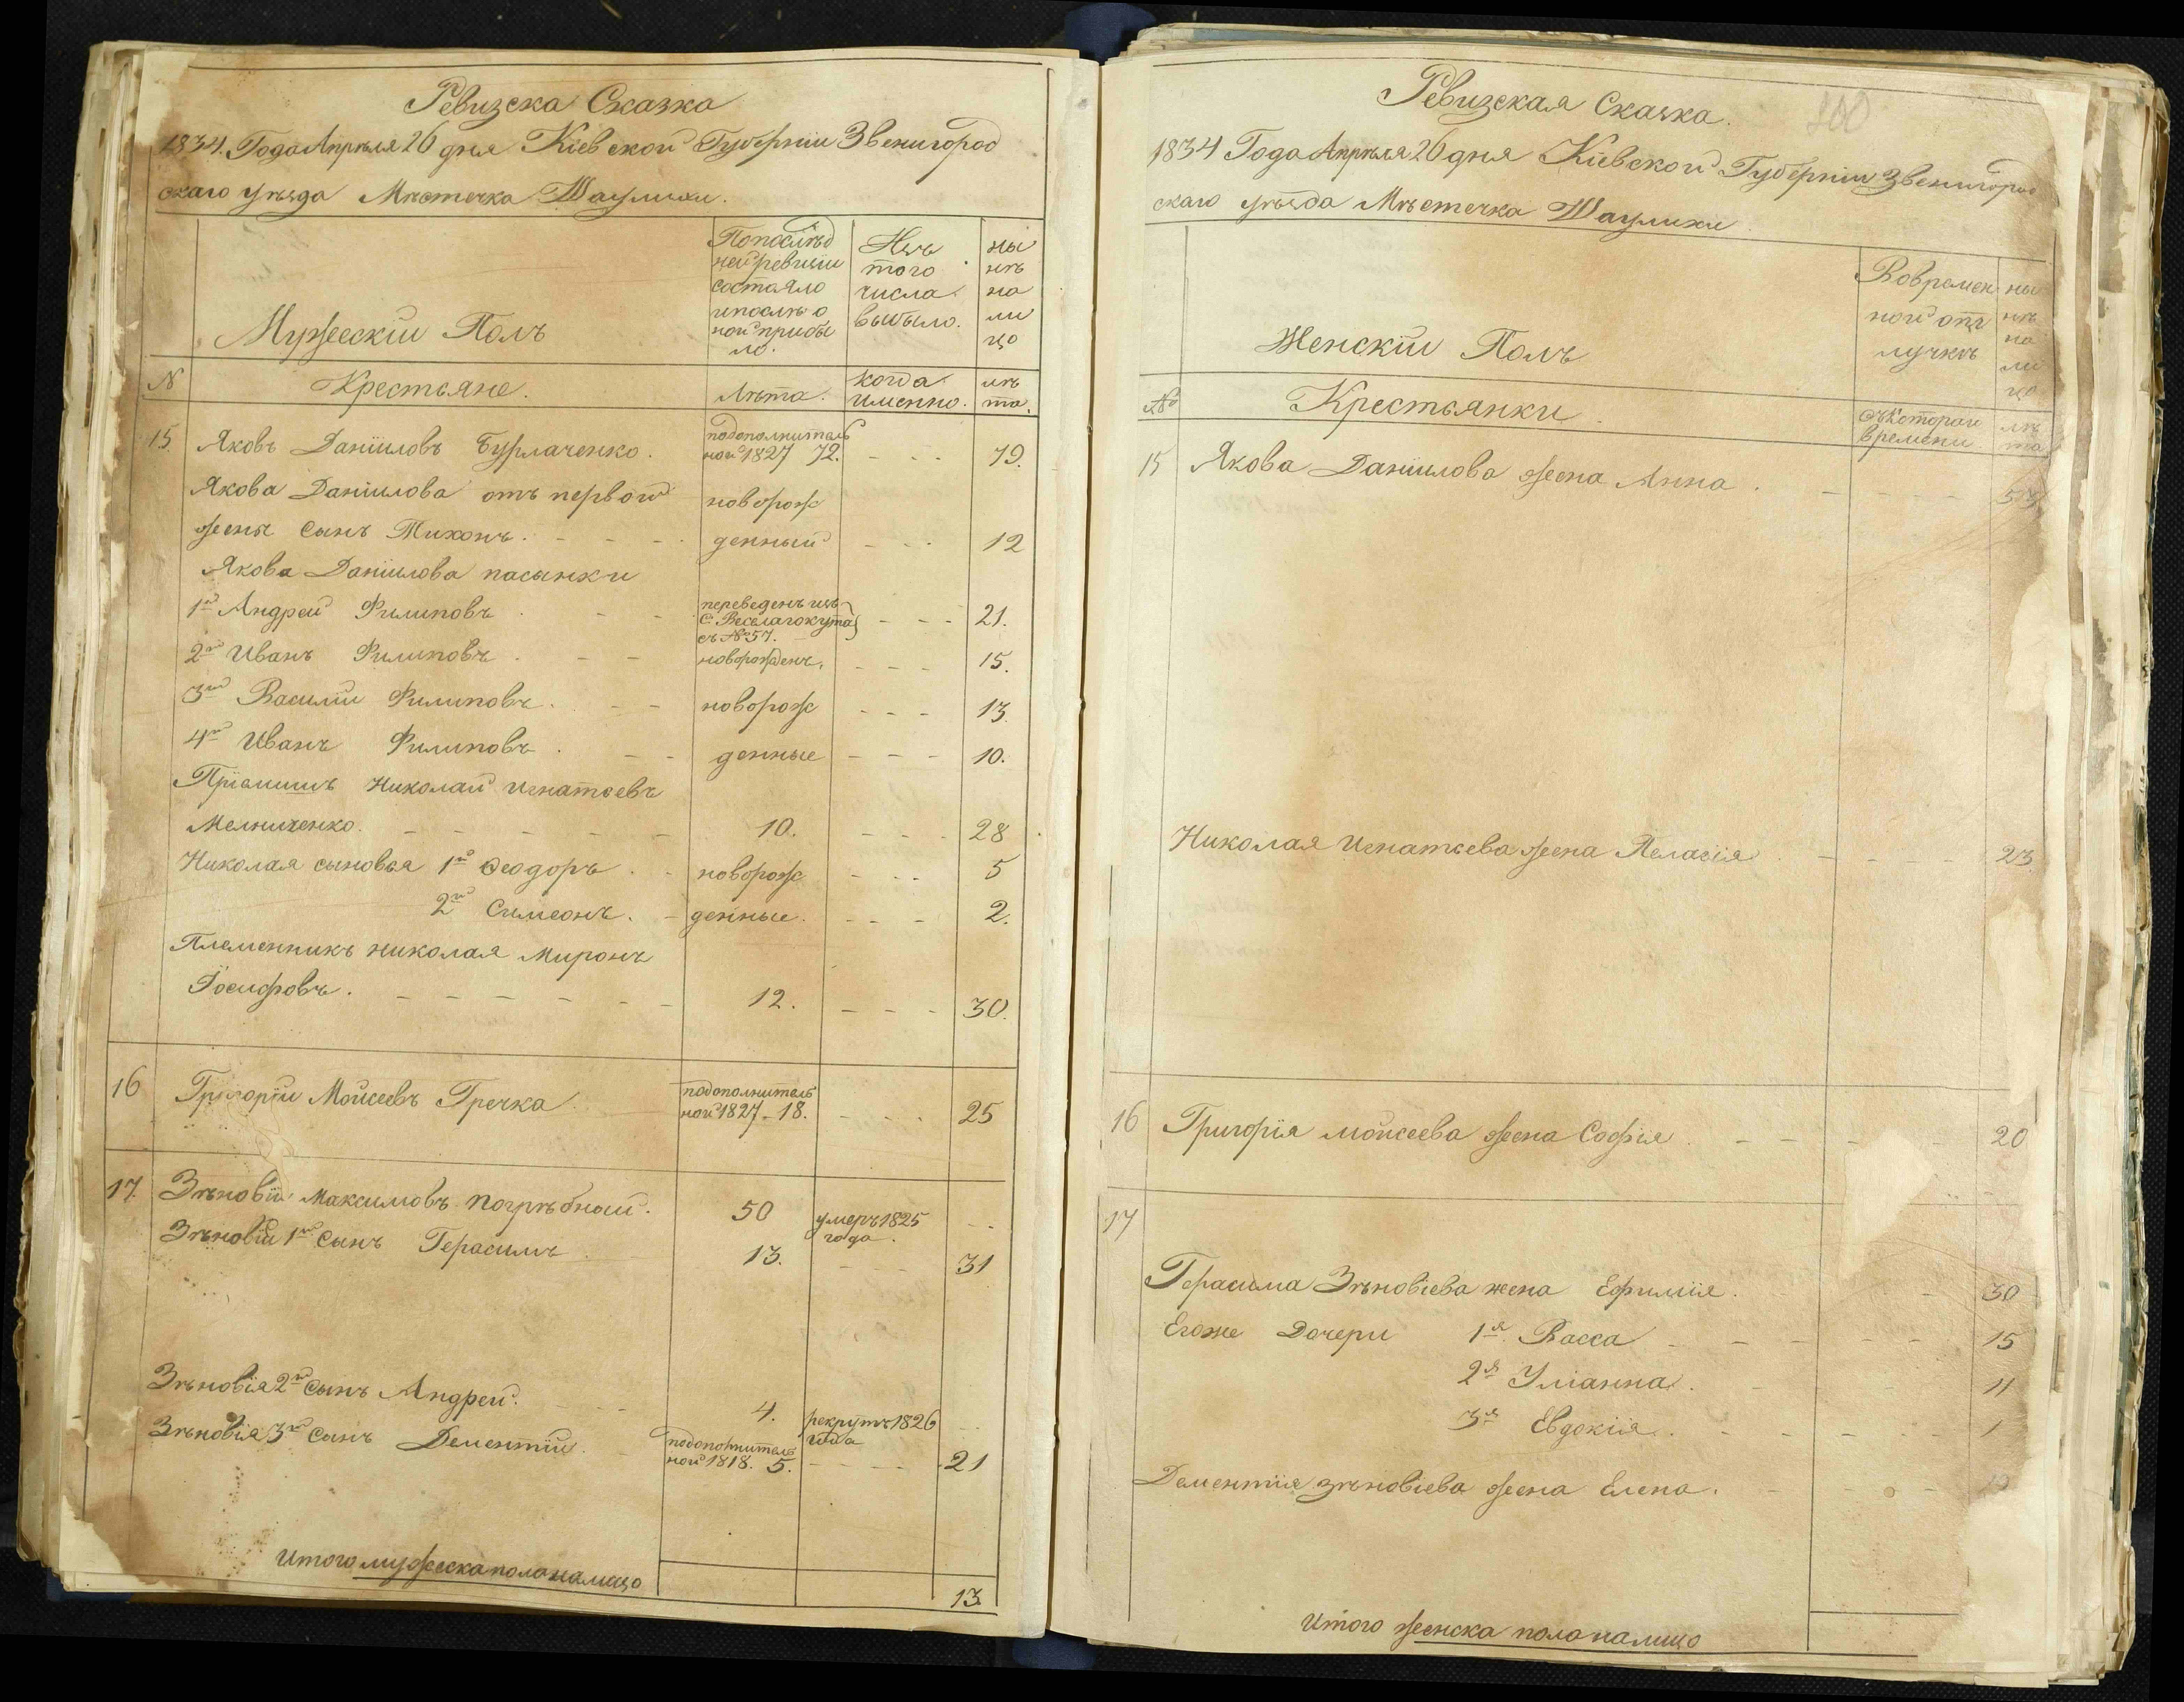 Ревизска Сказка
1834. Года Апрѣля 26 дня Кіевской Губерніи Звенигород
скаго уѣзда Мѣстечка Шаулихи.
Мужескіи Полъ
Попослѣд
ней ревизіи
состояло
ипослѣ о
ной прибы
ло.
Изъ
того
числа
выбыло.
ны
нѣ
на
ли
цо
N
Крестьяне.
Лѣта.
когда
именно.
лѣ
та.
15. Яковъ Даніиловъ Бурлаченко. подополнитель
ной 1827 72. - - - 79.
Якова Даніилова отъ первой новорож
жены сынъ Тихонъ. - - - денный - - - 12
Якова Даніилова пасынки
1й Андрей Филиповъ - - переведенъ изъ
С. Веселагокута
съ №57. - - - 21.
2й Иванъ Филиповъ. - - новорожденъ, - - - 15.
3й Василій Филиповъ. - - новорож - - - 13.
4й Иванъ Филиповъ. - - денные - - - 10.
Пріемышъ Николай Игнатьевъ
Мельниченко. - - - - - 10. - - - 28
Николая сыновья 1й Феодоръ. - новорож - - - 5
2й Симеонъ. - денные. - - - 2.
Племенникъ Николая Миронъ
Іосифовъ. - - - - - - 12. - - - 30.
16 Григорій Мойсеевъ Гречка. подополнитель
ной 1827 - 18. - - - 25
17. Зѣновіи Максимовъ Погрѣбный. 50 умеръ 1825
года. - -
Зѣновіи 1й Сынъ Герасимъ 13. - - - 31
Зѣновія 2й Сынъ Андрей. - - - 4. рекрутъ 1826
года
Зѣновія 3й Сынъ Дементій. - подополнитель
ной 1818. 5. - - - - 21
Итого мужеска пола налицо
13.
Ревизская Сказка.
1834 Года Апрѣля 26 дня Кіевской Губерніи Звенигород
скаго уѣзда Мѣстечка Шаулихи.
Женскіи Полъ
Вовремен
ной отъ
лучкѣ
ны
нѣ
на
ли
цо
№
Крестьянки
съкотораго
времени
лѣ
та
15 Якова Даніилова жена Анна. - - - - - 53
Николая Игнатьева жена Пелагія. - - - - - 23
16 Григорія Мойсеева жена Софія. - - - - 20
17
Герасима Зѣновіева жена Ефимія. - 30
Егоже Дочери 1я Васса - - - - - 15
2я Уліанна. - - 11
3я Евдокія. - - - - - 1
Дементія Зѣновіева жена Елена. - - -
Итого женска пола налицо